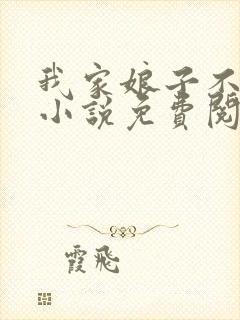 我家娘子不
小说免費閱
霞飛